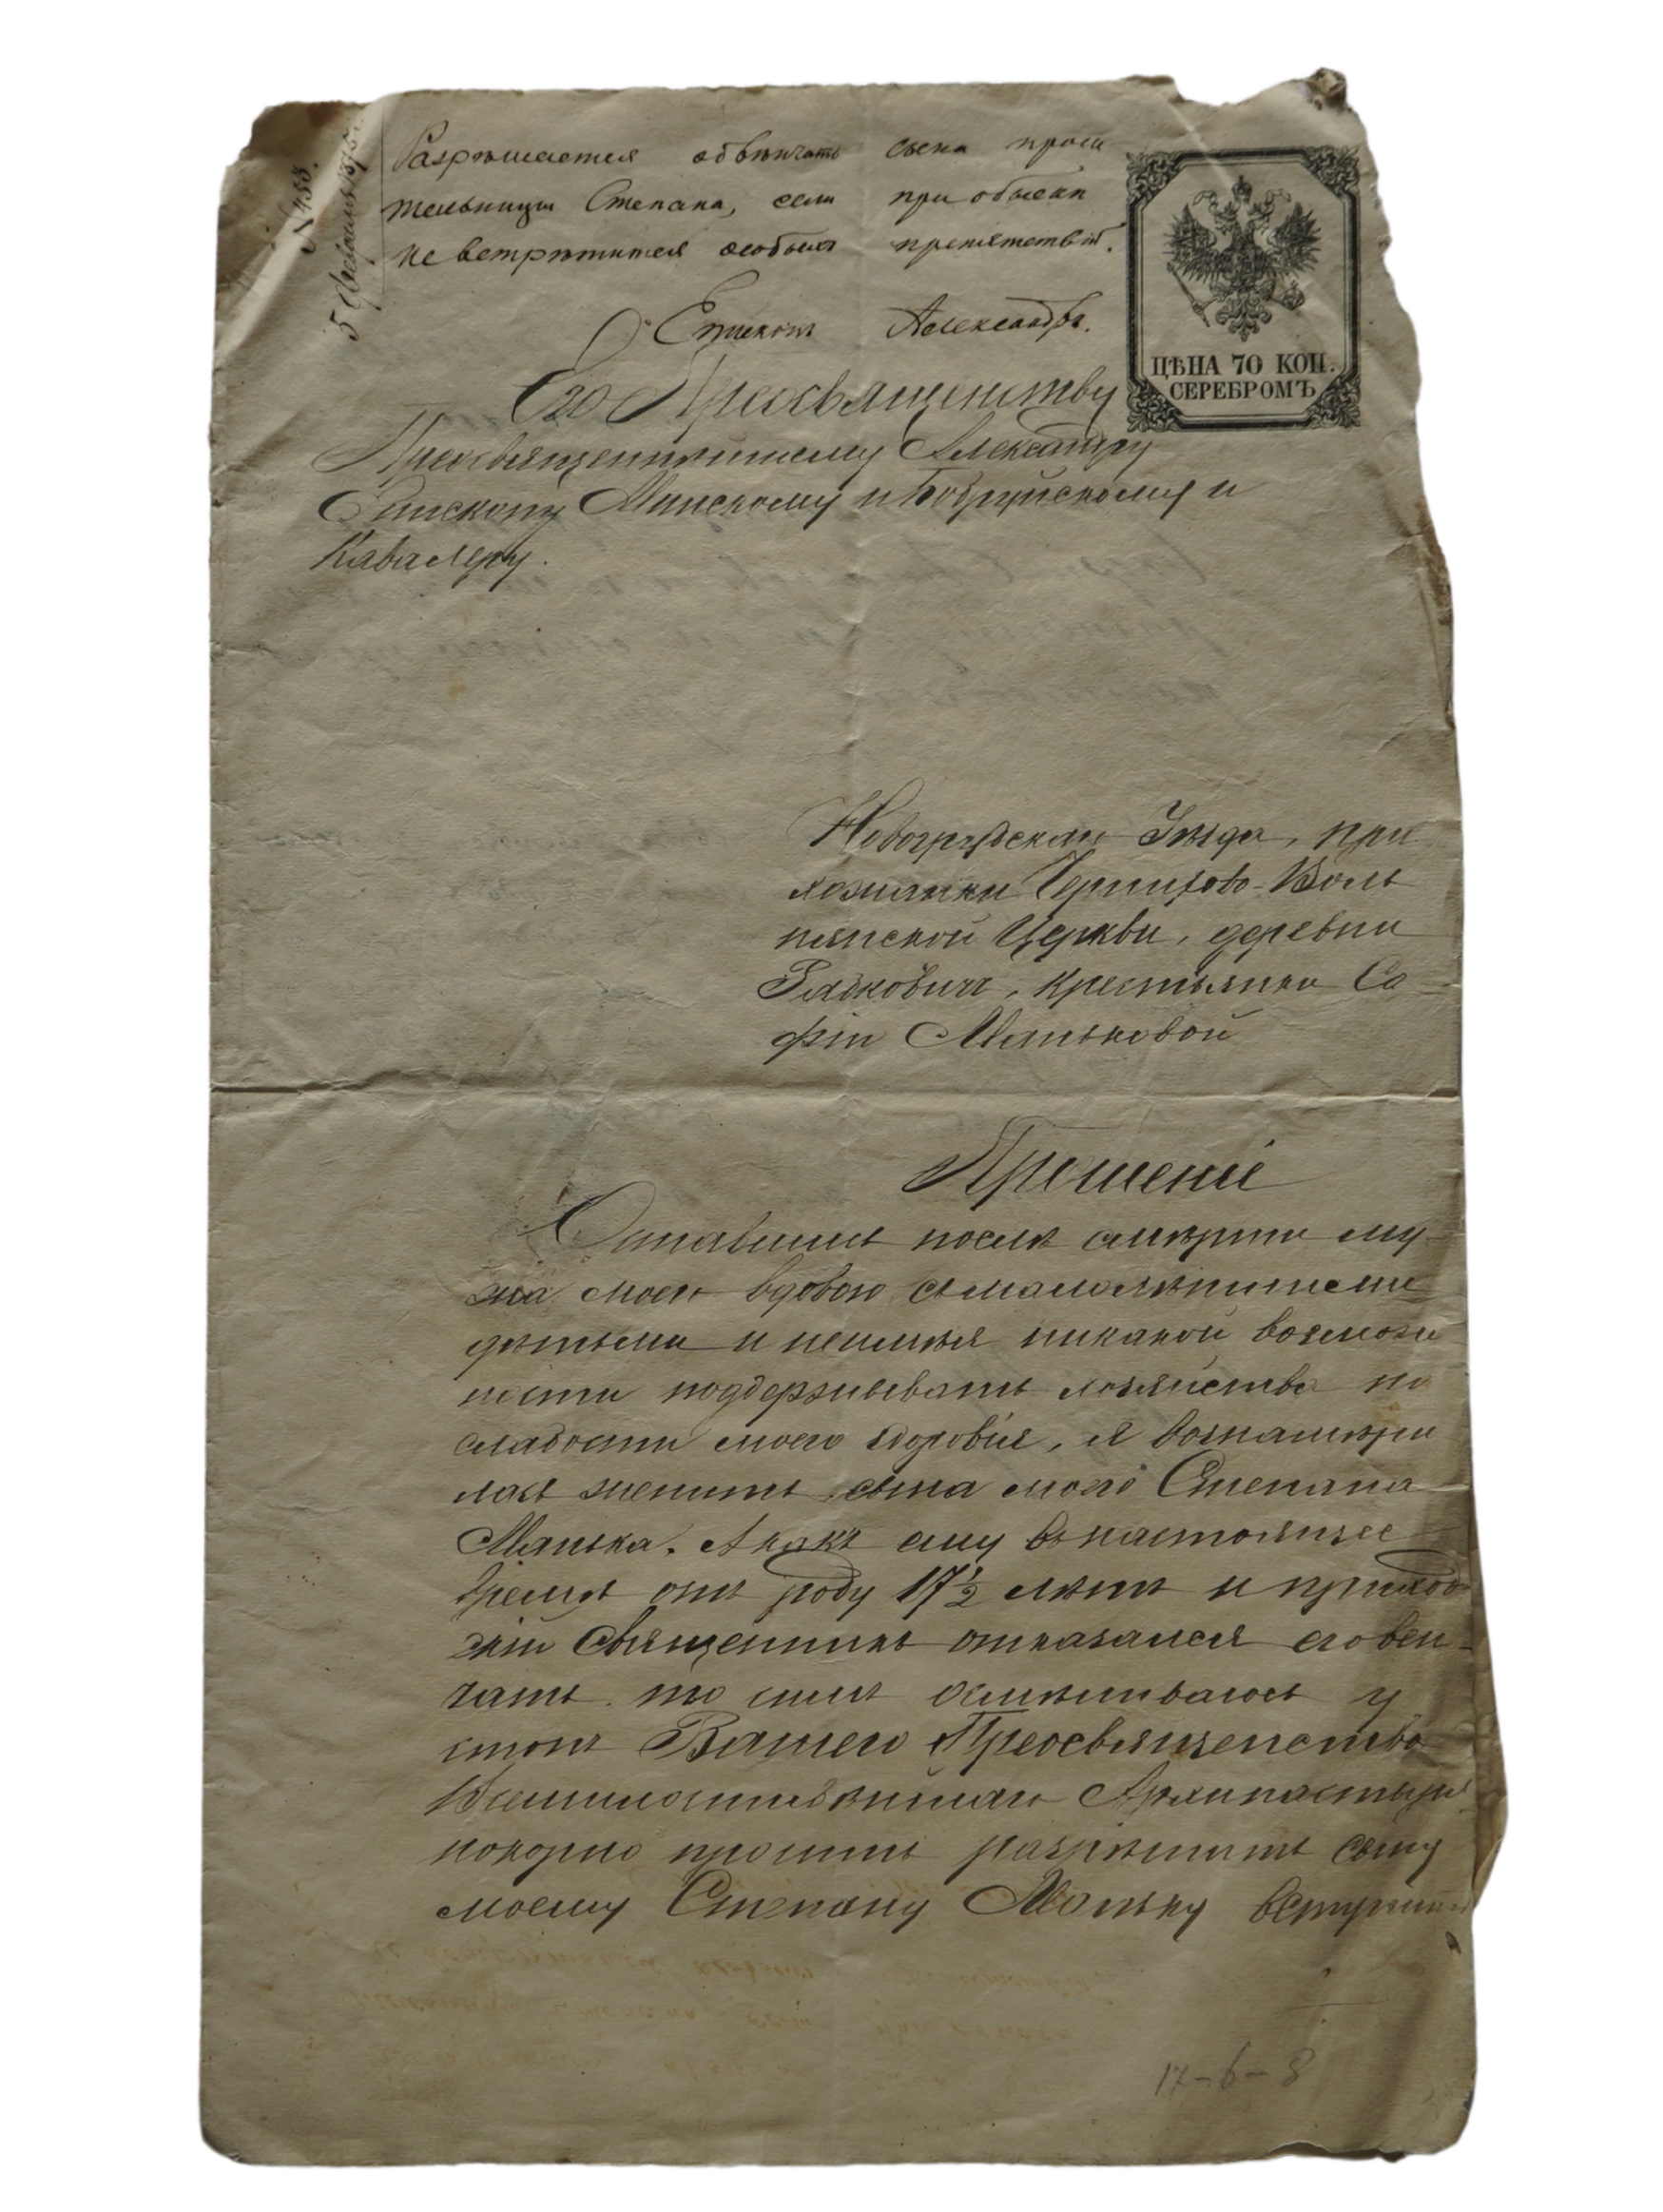 № 453.
5 Февраля 1875 г.
Разрѣшается обвѣнчать сына проси
тельницы Степана, если при обыскѣ
не встрѣтится особыхъ препятствій.
Епископъ Александръ.
ЦѢНА 70 КОП.
СЕРЕБРОМЪ
Его Преосвященству
Преосвященнѣйшему Александру
Епископу Минскому и Бобруйскому и
Кавалеру.
Новогрудскаго Уѣзда, при
хожанки Черни́хово-Воль
нянской Церкви, деревни
Крестьянки Со
фіи Маньковой
Прошеніе
Оставшись послѣ смерти му-
жа моего вдовою съ малолѣтними
дѣтьми и неимѣя никакой возмож
ности поддерживать хозяйство по
слабости моего здоровья, я вознамѣри
лась женить сына моего Степана
Манька. А какъ ему въ настоящее
время отъ роду 17½ лѣтъ и приход
скій Священникъ отказался его вен-
чать. то симъ осмѣливаюсь у
стопъ Вашего Преосвященства
Всемилостивѣйшаго Архипастыря
покорно просить разрѣшить сыну
моему Степану Маньку вступить
17-6-8